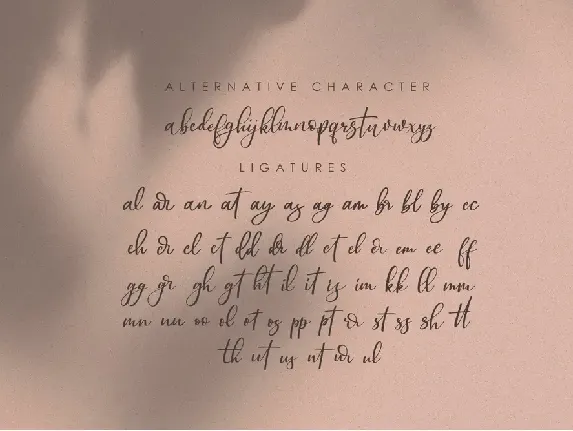 ALTERNATIVE CHARACTER
abcdefghijklmnopqrstuvwxyz
LIGATURES
al ar an at ay as ag am br bl by cc
ch cr cl ct dd dr dl et el er em ee ff
gg gr gh gt ht il it is im kk ll mm
mn nn oo ol ot os pp pt or st ss sh tt
th ut us nt ur ul